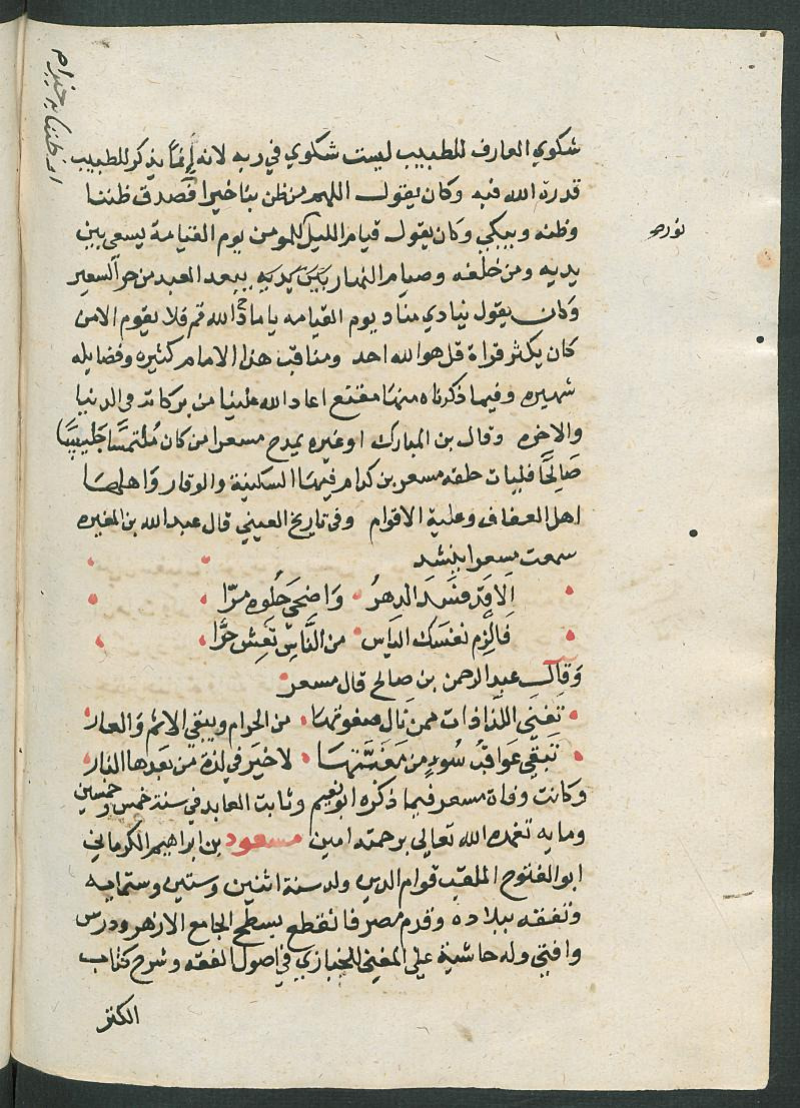 شكوي العارف للطبيب ليست شكوي في ربه لانه إنما يذكر للطبيب
قدرة الله فيه وكان يقول اللهم من ظن بنا خيرا فصدق ظننا
وظنه ويبكي وكان يقول قيام الليل للمومن نور يوم القيامة يسعى بين
يديه ومن خلفه وصيام النهار يبعد العبد من حر السعير
وكان يقول ينادي مناد يوم القيامه يا مادح الله قم فلا يقوم الا من
كان يكثر قراة قل هو الله احد ومناقب هذا الامام كثيره وفضايله
شهيره وفيما ذكرناه منها مقنع اعاد الله علينا من بركاته في الدنيا
والاخره وقال بن المبارك او غيره يمدح مسعرا من كان مُلتمسًا جَليسًا
صَالِحًا فليات حلقه مسعر بن كدام فيها السكينة والوقار وَاهلها
اهل العفاف وعلية الاقوام وفى تاريخ العيني قال عبد الله بن المغيره
سمعت مسعرا ينشد
الا قد فسَدَ الدهرُ وَاضحَي حُلوه مرّا
فَالزِم نفسَك الياس من النَّاسِ تَعِش حرًّا
وَقالـــ عبد الرحمن بن صالح قال مسعر
تفنى اللذاذات ممن نال صفوتها من الحرام ويبقي الاثم والعار
تَبقي عَواقبُ سُوءٍ من مَغَبَّتها لا خيَر في لذة من بَعدها النار
وكانت وفاة مسعر فيما ذكره ابو نعيم وثابت العابد في سنة خمس وخمسين
ومايه تغمده الله تعالى برحمته امين مسعود بن ابراهيم الكرماني
ابو الفتوح الملقب قوام الدين ولد سنة اثنين وستين وستمايه
وتفقه ببلاده وقدم مصر فانقطع بسطح الجامع الازهر ودرس
وافتي وله حاشية على المغني للخبازي في اصول الفقه وشرح كتاب
الكنز